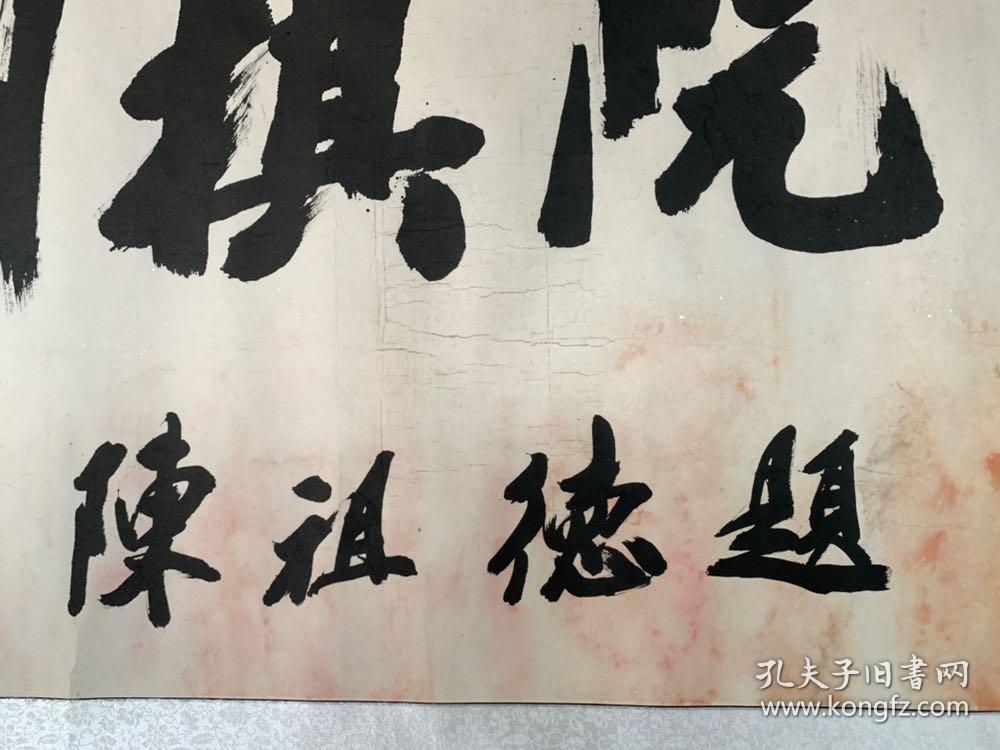 棋院
陳祖德題
孔夫子旧書网
www.kongfz.com